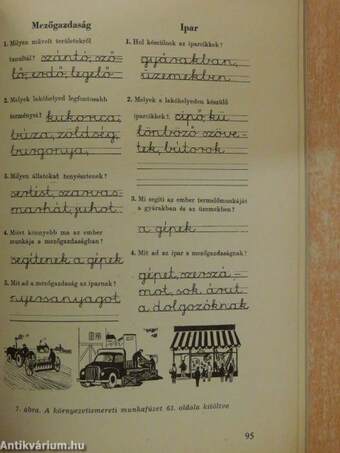 Mezőgazdaság
1. Milyen művelt területekről
tanultál? szántó, sző-
lő, erdő, legelő
2. Melyek lakóhelyed legfontosabb
terményei? kukorica,
búza, zöldség,
burgonya,
3. Milyen állatokat tenyésztenek?
sertést, szarvas-
marhát, juhot
4. Miért könnyebb ma az ember
munkája a mezőgazdaságban?
segítenek a gépek
5. Mit ad a mezőgazdaság az iparnak?
nyersanyagot
Ipar
1. Hol készülnek az iparcikkek?
gyárakban,
üzemekben
2. Melyek a lakóhelyeden készülő
iparcikkek? cipő, kü
lönböző szöve-
tek, bútorok
3. Mi segíti az ember termelőmunkáját
a gyárakban és az üzemekben?
a gépek
4. Mit ad az ipar a mezőgazdaságnak?
gépet, szerszá-
mot, sok árut
a dolgozóknak
7. ábra. A környezetismereti munkafüzet 63. oldala kitöltve
95
Antikvárium.hu